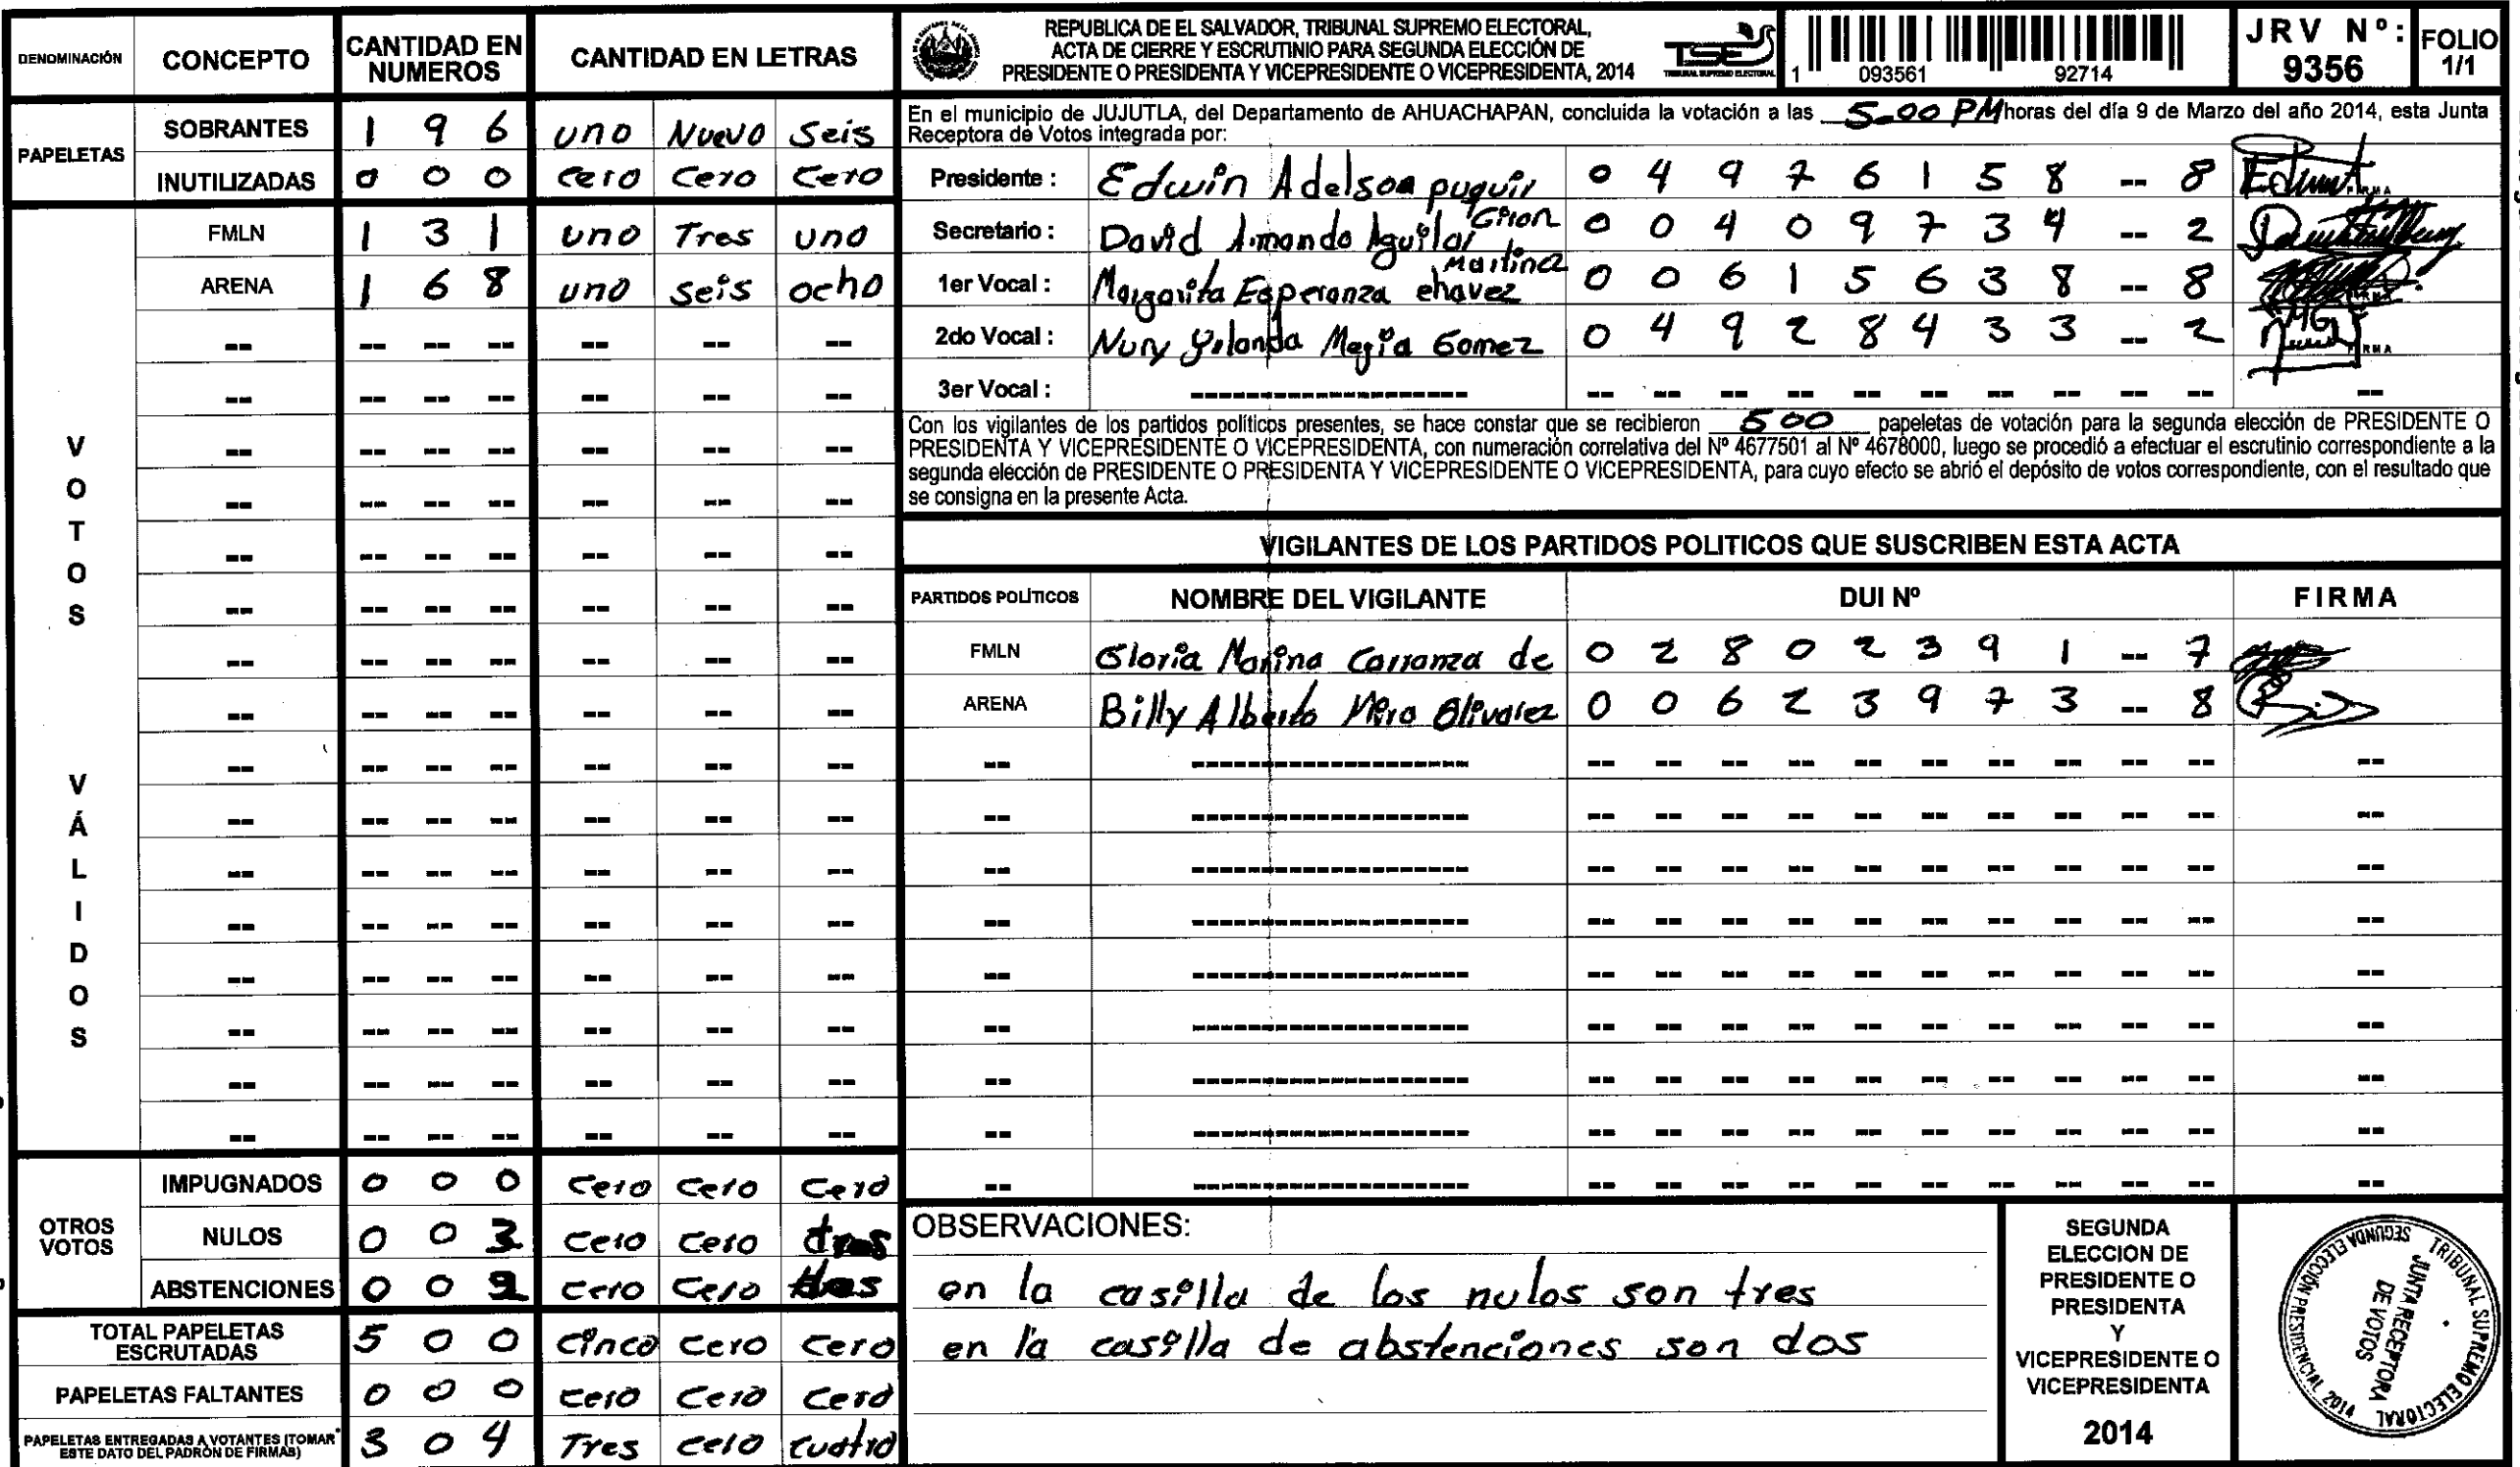 DENOMINACIÓN CONCEPTO CANTIDAD EN NUMEROS CANTIDAD EN LETRAS
PAPELETAS
SOBRANTES 1 9 6 uno Nuevo Seis
INUTILIZADAS 0 0 0 cero Cero Cero
VOTOS VÁLIDOS
FMLN 1 3 1 uno Tres uno
ARENA 1 6 8 uno seis ocho
OTROS VOTOS
IMPUGNADOS 0 0 0 Cero Cero Cero
NULOS 0 0 3 Cero Cero tres
ABSTENCIONES 0 0 2 Cero Cero dos
TOTAL PAPELETAS ESCRUTADAS 5 0 0 Cinco Cero Cero
PAPELETAS FALTANTES 0 0 0 Cero Cero Cero
PAPELETAS ENTREGADAS A VOTANTES (TOMAR ESTE DATO DEL PADRÓN DE FIRMAS) 3 0 4 Tres cero cuatro
REPUBLICA DE EL SALVADOR, TRIBUNAL SUPREMO ELECTORAL,
ACTA DE CIERRE Y ESCRUTINIO PARA SEGUNDA ELECCIÓN DE
PRESIDENTE O PRESIDENTA Y VICEPRESIDENTE O VICEPRESIDENTA, 2014
TSE
TRIBUNAL SUPREMO ELECTORAL
1 093561 92714
JRV Nº: 9356
FOLIO 1/1
En el municipio de JUJUTLA, del Departamento de AHUACHAPAN, concluida la votación a las 5-00 PM horas del día 9 de Marzo del año 2014, esta Junta
Receptora de Votos integrada por:
Presidente : Edwin Adelson puquir Giron 0 4 9 7 6 1 5 8 -- 8
Secretario : David Armando Aguilar Martinez 0 0 4 0 9 7 3 4 -- 2
1er Vocal : Margarita Esperanza chavez 0 0 6 1 5 6 3 8 -- 8
2do Vocal : Nury Yolanda Megia Gomez 0 4 9 2 8 4 3 3 -- 2
3er Vocal :
Con los vigilantes de los partidos políticos presentes, se hace constar que se recibieron 500 papeletas de votación para la segunda elección de PRESIDENTE O
PRESIDENTA Y VICEPRESIDENTE O VICEPRESIDENTA, con numeración correlativa del Nº 4677501 al Nº 4678000, luego se procedió a efectuar el escrutinio correspondiente a la
segunda elección de PRESIDENTE O PRESIDENTA Y VICEPRESIDENTE O VICEPRESIDENTA, para cuyo efecto se abrió el depósito de votos correspondiente, con el resultado que
se consigna en la presente Acta.
VIGILANTES DE LOS PARTIDOS POLITICOS QUE SUSCRIBEN ESTA ACTA
PARTIDOS POLÍTICOS NOMBRE DEL VIGILANTE DUI Nº FIRMA
FMLN Gloria Marina Carranza de 0 2 8 0 2 3 9 1 -- 7
ARENA Billy Alberto Mira Olivarez 0 0 6 2 3 9 7 3 -- 8
OBSERVACIONES:
en la casilla de los nulos son tres
en la casilla de abstenciones son dos
SEGUNDA
ELECCION DE
PRESIDENTE O
PRESIDENTA
Y
VICEPRESIDENTE O
VICEPRESIDENTA
2014
TRIBUNAL SUPREMO ELECTORAL
SEGUNDA ELECCIÓN PRESIDENCIAL 2014
JUNTA RECEPTORA
DE VOTOS